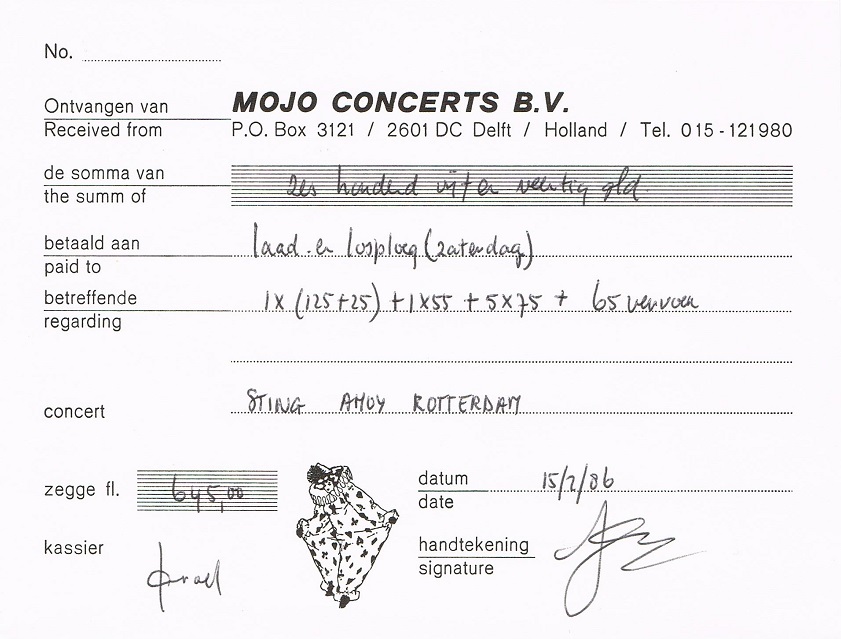 No.
Ontvangen van MOJO CONCERTS B.V.
Received from P.O. Box 3121 / 2601 DC Delft / Holland / Tel. 015-121980
de somma van
the summ of zes honderd vijf en veertig gld.
betaald aan laad en losploeg (zaterdag)
paid to
betreffende 1x (125+25) + 1x55 + 5x75 + 65 vervoer
regarding
concert STING AHOY ROTTERDAM
zegge fl. 645,00
datum 15/2/86
date
kassier
handtekening
signature